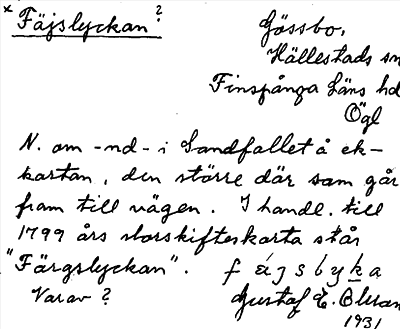 x Fäjslyckan?
Gössbo,
Hällestads sn
Finspånga läns hd
Ögl
N. om -nd- i Sandfallet å ek-
kartan, den större där som går
fram till vägen. I handl. till
1799 års storskifteskarta står
"Färgslyckan". f ä j s b y k a
Varav? Gustaf E. Olsson
1931